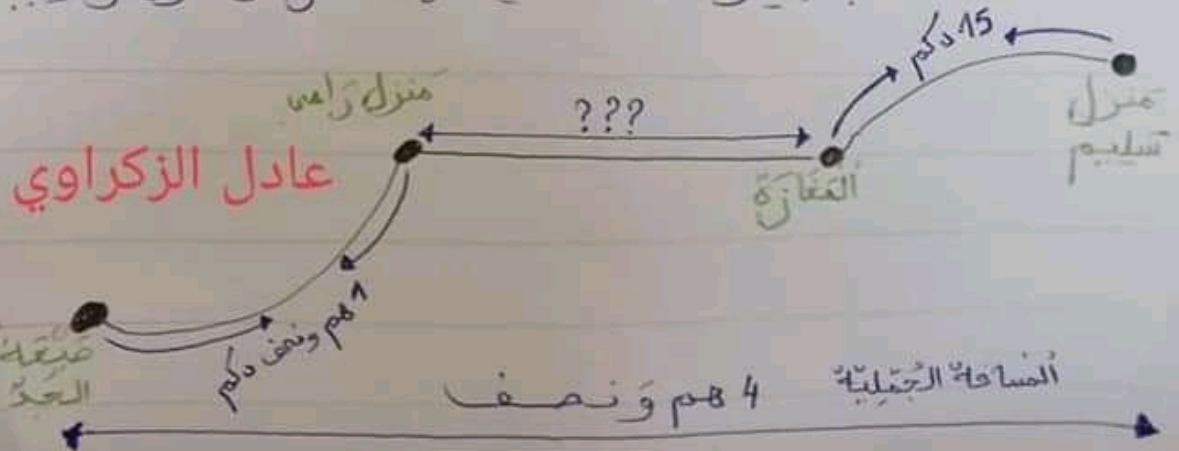 15 دكم
منزل سليم
منزل رامي
???
المغازة
عادل الزكراوي
1 هم ونصف دكم
ضيعة الجدّ
المساحة الجُمْلِيّة 4 هم وَنصف